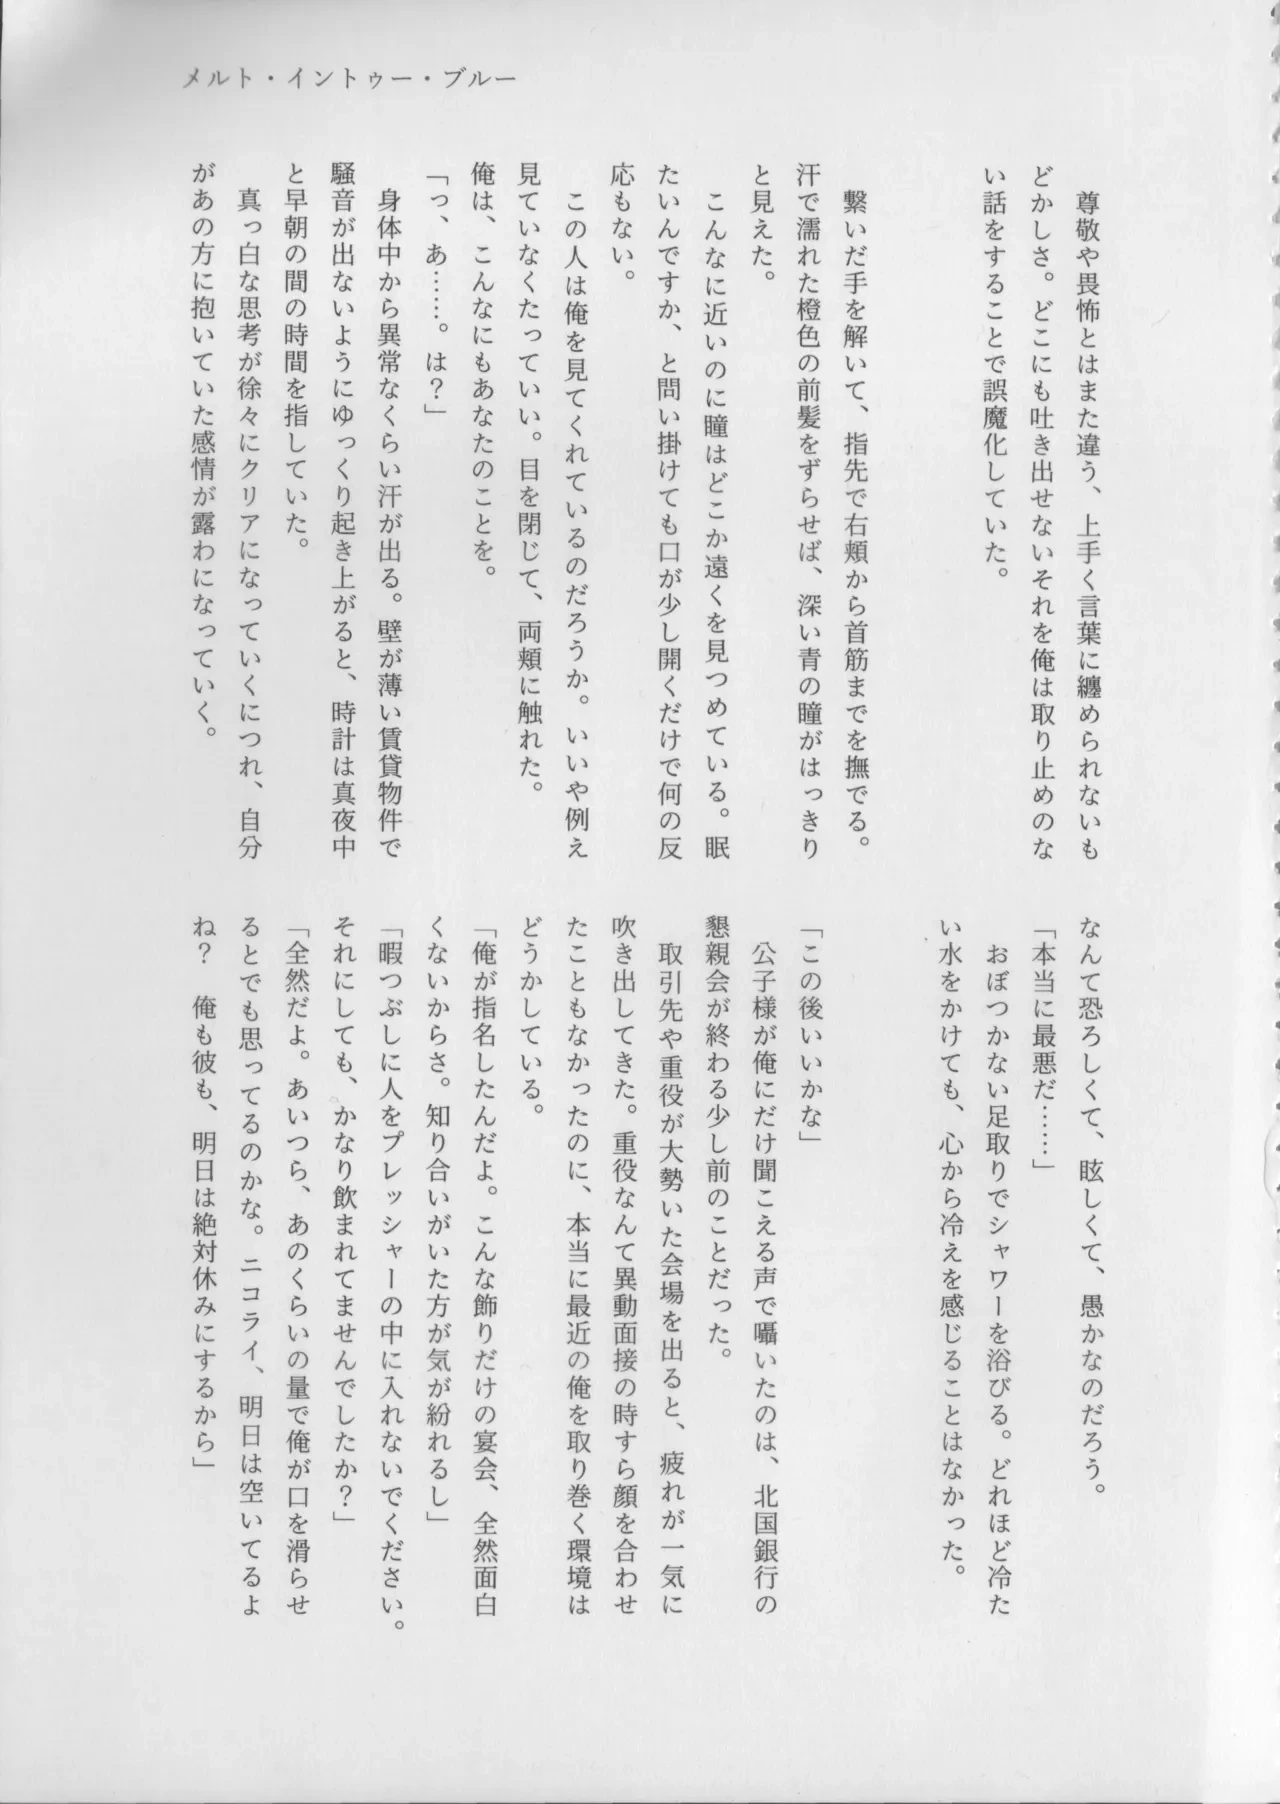 メルト・イントゥー・ブルー
尊敬や畏怖とはまた違う、上手く言葉に纏められないも
どかしさ。どこにも吐き出せないそれを俺は取り止めのな
い話をすることで誤魔化していた。
繋いだ手を解いて、指先で右頬から首筋までを撫でる。
汗で濡れた橙色の前髪をずらせば、深い青の瞳がはっきり
と見えた。
こんなに近いのに瞳はどこか遠くを見つめている。眠
たいんですか、と問い掛けても口が少し開くだけで何の反
応もない。
この人は俺を見てくれているのだろうか。いいや例え
見ていなくたっていい。目を閉じて、両頬に触れた。
俺は、こんなにもあなたのことを。
「っ、あ……。は？」
身体中から異常なくらい汗が出る。壁が薄い賃貸物件で
騒音が出ないようにゆっくり起き上がると、時計は真夜中
と早朝の間の時間を指していた。
真っ白な思考が徐々にクリアになっていくにつれ、自分
があの方に抱いていた感情が露わになっていく。
なんて恐ろしくて、眩しくて、愚かなのだろう。
「本当に最悪だ……」
おぼつかない足取りでシャワーを浴びる。どれほど冷た
い水をかけても、心から冷えを感じることはなかった。
「この後いいかな」
公子様が俺にだけ聞こえる声で囁いたのは、北国銀行の
懇親会が終わる少し前のことだった。
取引先や重役が大勢いた会場を出ると、疲れが一気に
吹き出してきた。重役なんて異動面接の時すら顔を合わせ
たこともなかったのに、本当に最近の俺を取り巻く環境は
どうかしている。
「俺が指名したんだよ。こんな飾りだけの宴会、全然面白
くないからさ。知り合いがいた方が気が紛れるし」
「暇つぶしに人をプレッシャーの中に入れないでください。
それにしても、かなり飲まれてませんでしたか？」
「全然だよ。あいつら、あのくらいの量で俺が口を滑らせ
るとでも思ってるのかな。ニコライ、明日は空いてるよ
ね？　俺も彼も、明日は絶対休みにするから」